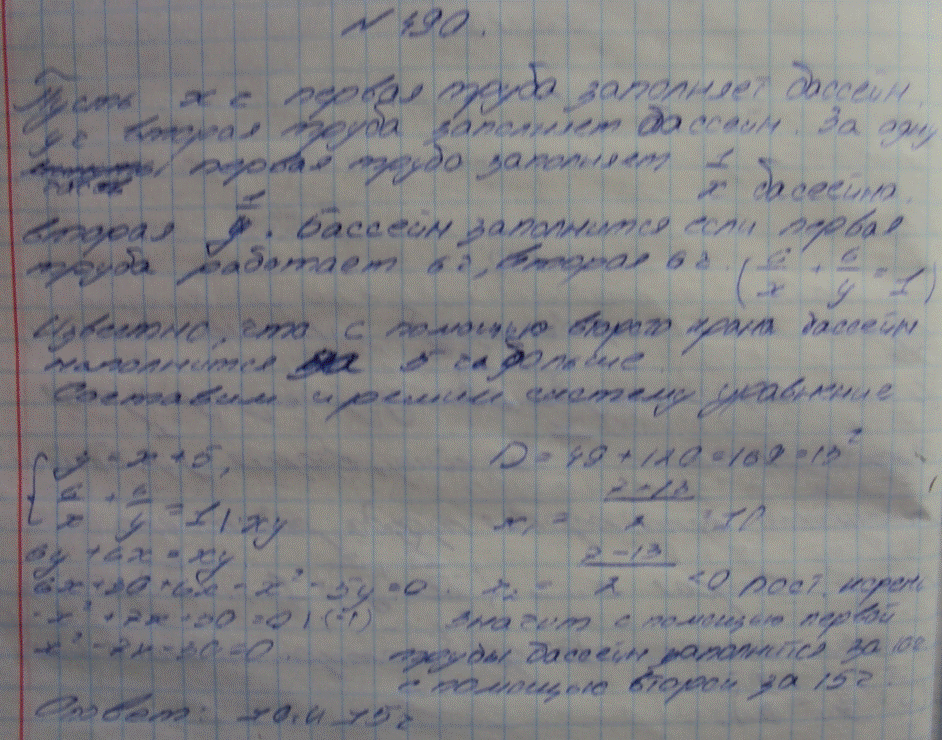 № 490.
Пусть x с первая труба заполняет бассейн.
y г вторая труба заполняет бассейн. За одну
первая труба заполняет 1/x бассейна.
вторая 1/y. Бассейн заполнится если первая
труба работает 6 г, вторая 6 г. (6/x + 6/y = 1)
Известно, что с помощью второго крана бассейн
наполнится на 5 больше
Составим и решим систему уравнение
{ y = x + 5,
6/x + 6/y = 1 | · xy
6y + 6x = xy
6x + 30 + 6x - x² - 5y = 0.
-x² + 7x + 30 = 0 | (-1)
x² - 7x - 30 = 0.
D = 49 + 120 = 169 = 13²
x₁ = 7+13/2 = 10
x₂ = 7-13/2 < 0 пост. корень
Значит с помощью первой
трубы бассейн заполнится за 10г
с помощью второй за 15г.
Ответ: 10 и 15г